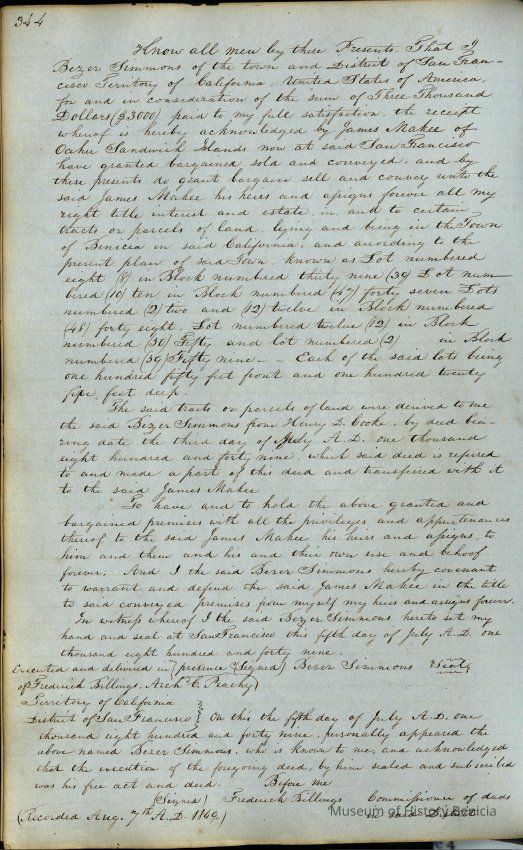 344
Know all men by these Presents That I
Bezer Simmons of the town and District of San Fran-
cisco Territory of California, United States of America,
for and in consideration of the sum of Three Thousand
Dollars ($3000) paid to my full satisfaction, the receipt
whereof is hereby acknowledged by James Makee of
Oahu Sandwich Islands now at said San Francisco
have granted bargained sold and conveyed, and by
these presents do grant bargain sell and convey unto the
said James Makee his heirs and assigns forever all my
right title interest and estate, in and to certain
tracts or parcels of land, lying and being in the Town
of Benicia in said California, and according to the
present plan of said Town, known as Lot numbered
eight (8) in Block numbered thirty nine (39) Lot num-
bered (10) ten in Block numbered (47) forty seven Lots
numbered (2) two and (12) twelve in Block numbered
(48) forty eight, Lot numbered twelve (12) in Block
numbered (50) Fifty and lot numbered (2) in Block
numbered (59) Fifty nine — Each of the said lots being
one hundred fifty feet front and one hundred twenty
five feet deep.
The said tracts or parcels of land were derived to me
the said Bezer Simmons from Henry D. Cooke, by deed bea-
ring date the third day of July A.D. one thousand
eight hundred and forty nine, which said deed is referred
to and made a part of this deed and transferred with it
to the said James Makee
To have and to hold the above granted and
bargained premises with all the privileges and appertenances
thereof to the said James Makee his heirs and assigns, to
him and them and his and their own use and behoof
forever. And I the said Bezer Simmons hereby covenant
to warrant and defend the said James Makee in the title
to said conveyed premises from myself my heirs and assigns forever.
In witness whereof I the said Bezer Simmons hereto set my
hand and seal at San Francisco this fifth day of July A.D. one
thousand eight hundred and forty nine.
Executed and delivered in presence (Signed) Bezer Simmons (Seal)
of Frederick Billings, Arch. C. Peachy
Territory of California
District of San Francisco On this the fifth day of July A.D. one
thousand eight hundred and forty nine, personally appeared the
above named Bezer Simmons, who is known to me, and acknowledged
that the execution of the foregoing deed, by him sealed and subscribed
was his free act and deed. Before me
(Signed) Frederick Billings Commissioner of deeds
(Recorded Aug. 7th A.D. 1849) in said District
Museum of History Benicia